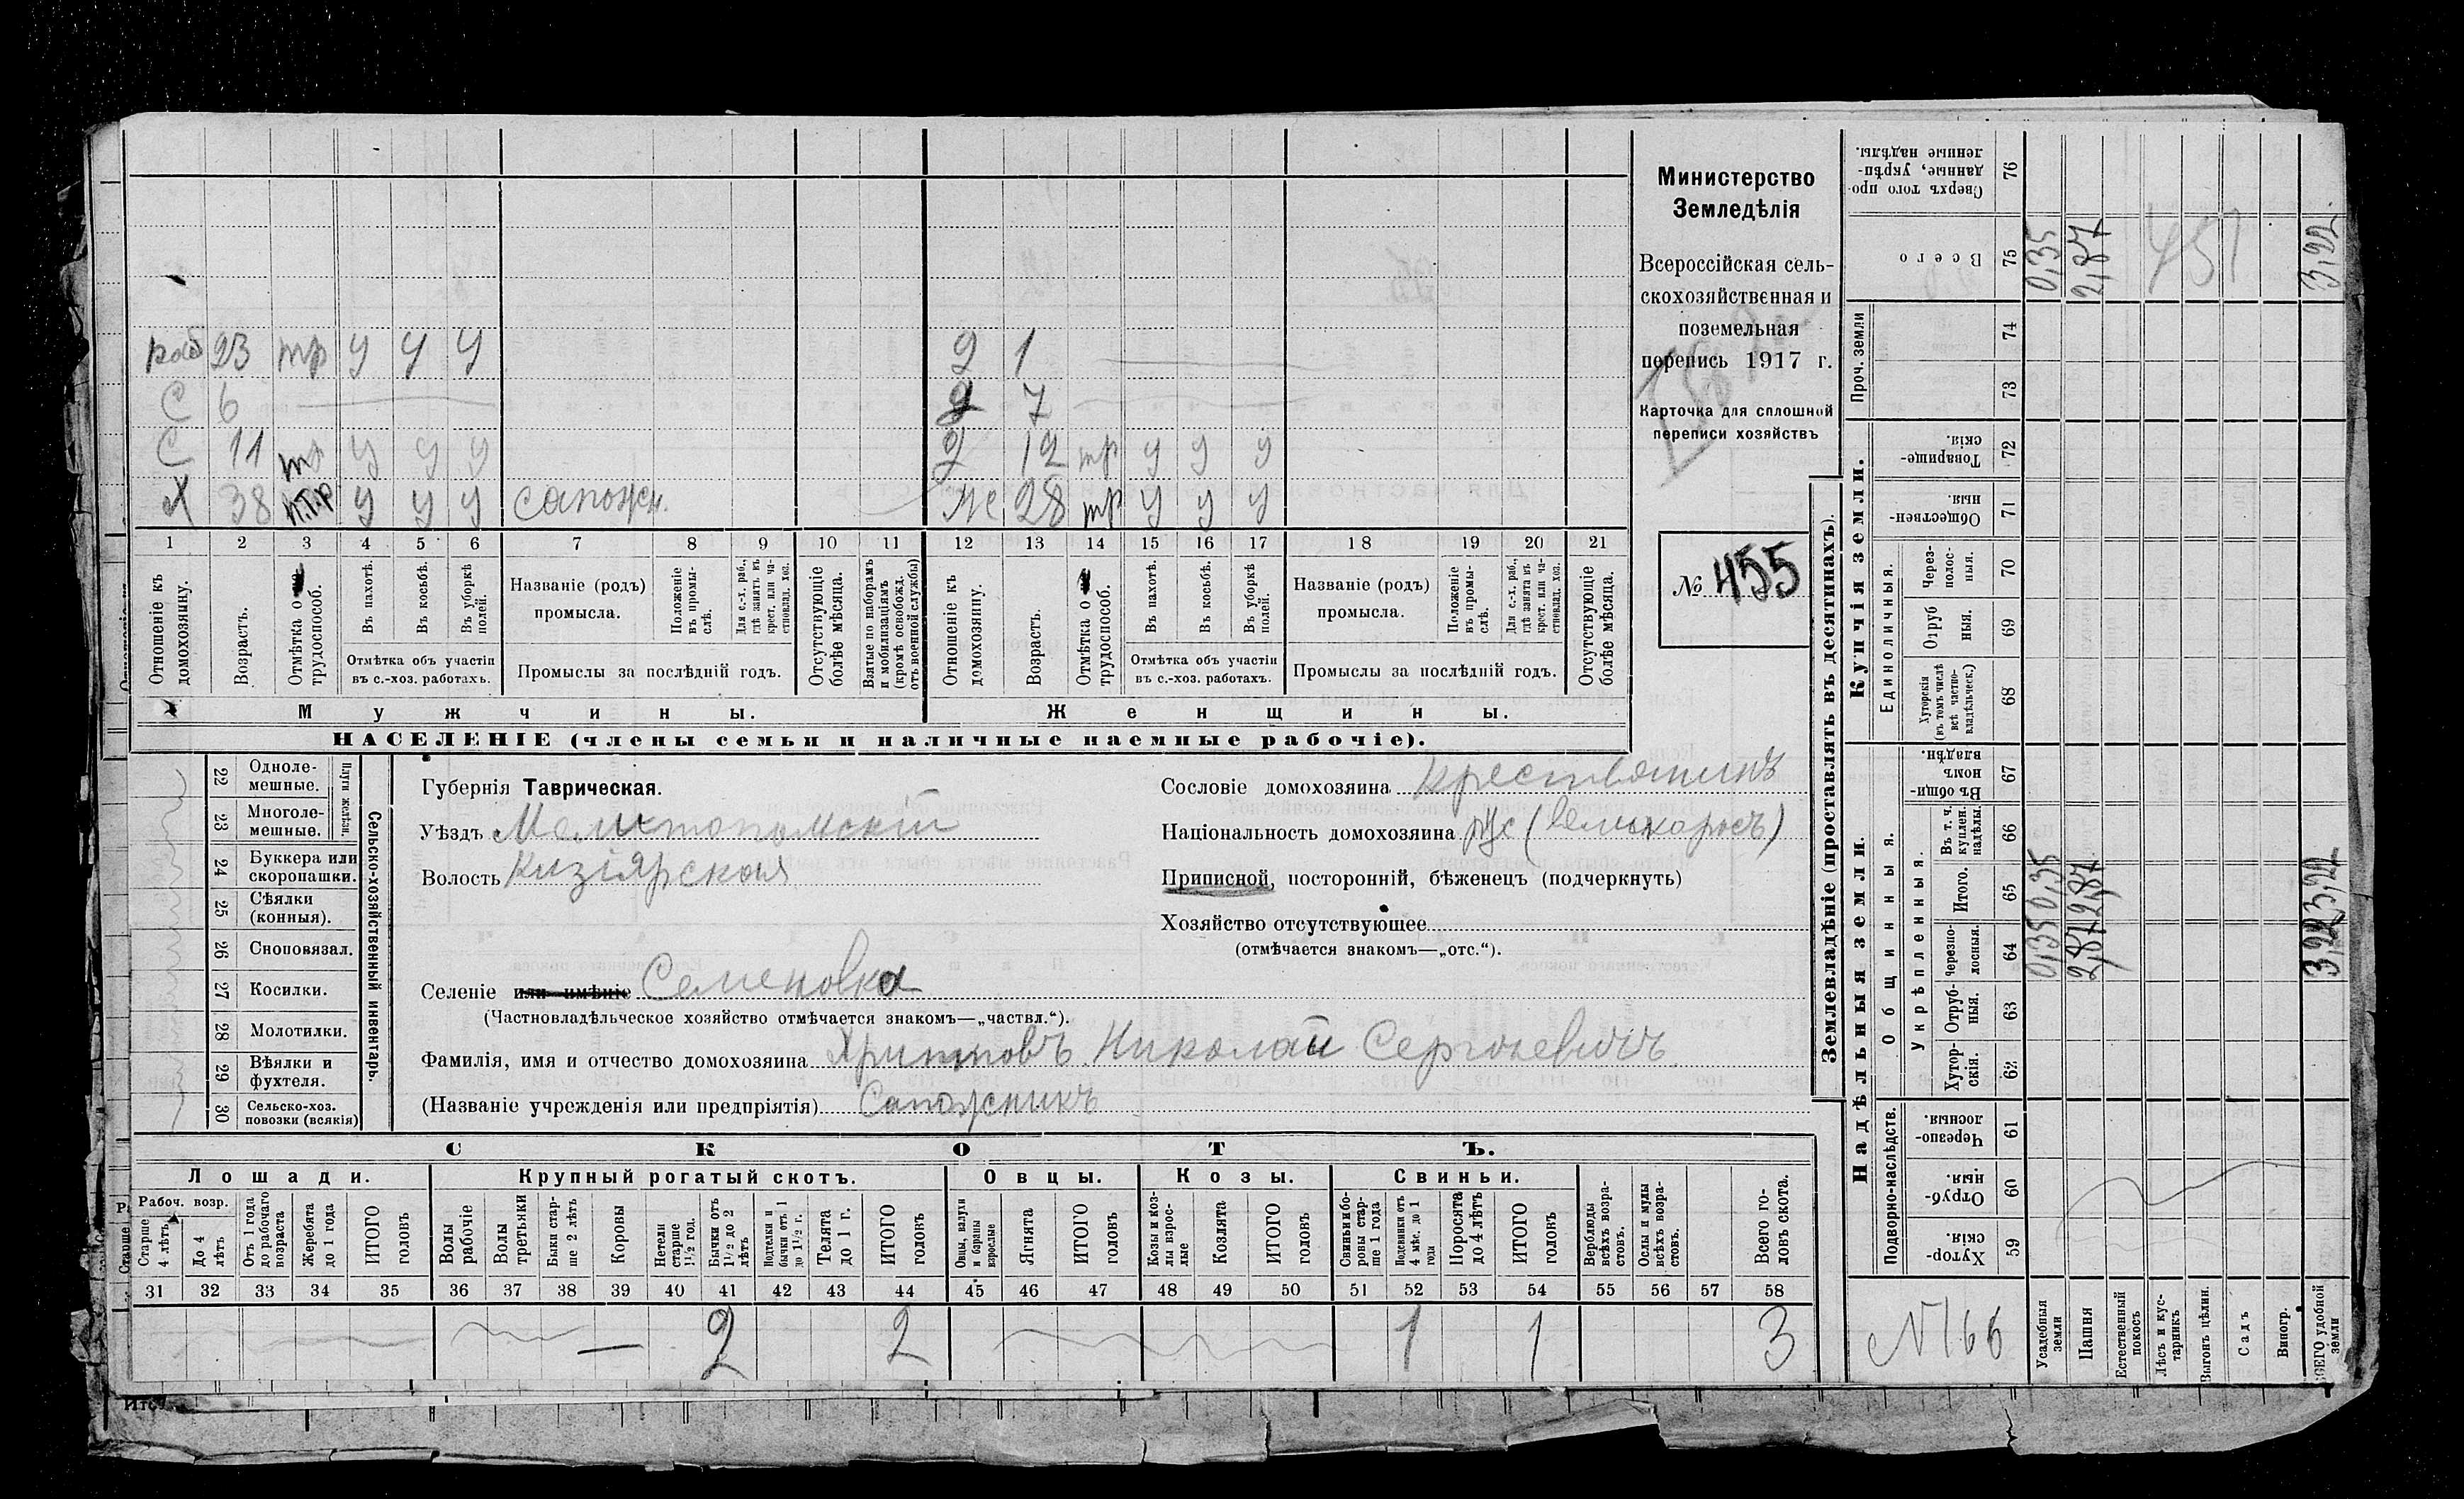 раб 23 тр у у у 2 1
С 6 д 7
С 11 у у у д 12 тр у у у
Х 38 п.тр у у у сапожн. ж 28 тр у у у
1 2 3 4 5 6 7 8 9 10 11 12 13 14 15 16 17 18 19 20 21
Отношеніе къ домохозяину.
Возрастъ.
Отмѣтка о трудоспособ.
Въ пахотѣ.
Въ косьбѣ.
Въ уборкѣ полей.
Отмѣтка объ участіи въ с.-хоз. работахъ.
Названіе (родъ) промысла.
Положеніе въ промы-слѣ.
Для с.-х. раб., гдѣ занятъ въ крест. или ча-стновлад. хоз.
Промыслы за послѣдній годъ.
Отсутствующіе болѣе мѣсяца.
Взятые по наборамъ и мобилизаціямъ (кромѣ освобожд. отъ военной службы)
Отношеніе къ домохозяину.
Возрастъ.
Отмѣтка о трудоспособ.
Въ пахотѣ.
Въ косьбѣ.
Въ уборкѣ полей.
Отмѣтка объ участіи въ с.-хоз. работахъ.
Названіе (родъ) промысла.
Положеніе въ промы-слѣ.
Для с.-х. раб., гдѣ занятъ въ крест. или ча-стновлад. хоз.
Промыслы за послѣдній годъ.
Отсутствующіе болѣе мѣсяца.
Мужчины.
Женщины.
НАСЕЛЕНІЕ (члены семьи и наличные наемные рабочіе).
Министерство
Земледѣлія
Всероссійская сель-
скохозяйственная и
поземельная
перепись 1917 г.
Карточка для сплошной
переписи хозяйствъ
№ 455
22 Одноле-мешные.
23 Многоле-мешные.
Плуги желѣзн.
24 Буккера или скоропашки.
25 Сѣялки (конныя).
26 Сноповязал.
27 Косилки.
28 Молотилки.
29 Вѣялки и фухтеля.
30 Сельско-хоз. повозки (всякія)
Сельско-хозяйственный инвентарь.
Губернія Таврическая.
Уѣздъ Мелитопольскій
Волость Кизіярская
Селеніе или имѣніе Семеновка
(Частновладѣльческое хозяйство отмѣчается знакомъ—„частвл.“).
Фамилія, имя и отчество домохозяина Николай Сергѣевичъ
(Названіе учрежденія или предпріятія) Сапожникъ
Сословіе домохозяина крестьянинъ
Національность домохозяина рус (великоросъ)
Приписной, посторонній, бѣженецъ (подчеркнуть)
Хозяйство отсутствующее
(отмѣчается знакомъ—„отс.“).
СКОТЪ.
Лошади. Крупный рогатый скотъ. Овцы. Козы. Свиньи.
Рабоч. возр.
Старше 4 лѣтъ
До 4 лѣтъ
Отъ 1 года до рабочаго возраста
Жеребята до 1 года
ИТОГО головъ
Волы рабочіе
Волы третьяки
Быки стар-ше 2 лѣтъ
Коровы
Нетели старше 1½ год.
Бычки отъ 1½ до 2 лѣтъ
Подтелки и бычки отъ 1 до 1½ г.
Телята до 1 г.
ИТОГО головъ
Овцы, валухи и бараны взрослые
Ягнята
ИТОГО головъ
Козы и коз-лы взрос-лые
Козлята
ИТОГО головъ
Свиньи и бо-ровы стар-ше 1 года
Подсвинки отъ 4 мѣс. до 1 года
Поросята до 4 лѣтъ
ИТОГО головъ
Верблюды всѣхъ возра-стовъ.
Ослы и мулы всѣхъ возра-стовъ.
Всего го-ловъ скота.
31 32 33 34 35 36 37 38 39 40 41 42 43 44 45 46 47 48 49 50 51 52 53 54 55 56 57 58
— 2 2 1 1 3
Землевладѣніе (проставлять въ десятинахъ).
Купчія земли.
Надѣльныя земли.
Сверхъ того про-данные, укрѣп-ленные надѣлы. 76
Всего 75 0,35 2,87 3,22
457
Проч. земли 74 73
Товарище-скія. 72
Обществен-ныя. 71
Единоличныя.
Через-полос-ныя. 70
Отруб ныя. 69
Хуторскія (въ томъ числѣ всѣ частно-владѣльческ.) 68
Общинныя.
Въ общи-номъ владѣн. 67
Укрѣпленныя.
Въ т. ч. куплен. надѣлы. 66
Итого. 65 0,35 2,87 3,22
Черезпо-лосныя. 64 0,35 2,87 3,22
Отруб-ныя. 63
Хутор-скія. 62
Подворно-наслѣдств.
Черезпо-лосныя. 61
Отруб-ныя. 60
Хутор-скія. 59
N 166
Усадебныя земли
Пашня
Естественный покосъ
Лѣсъ и кус-тарникъ
Выгонъ цѣлин.
Садъ
Виногр.
ВСЕГО удобной земли